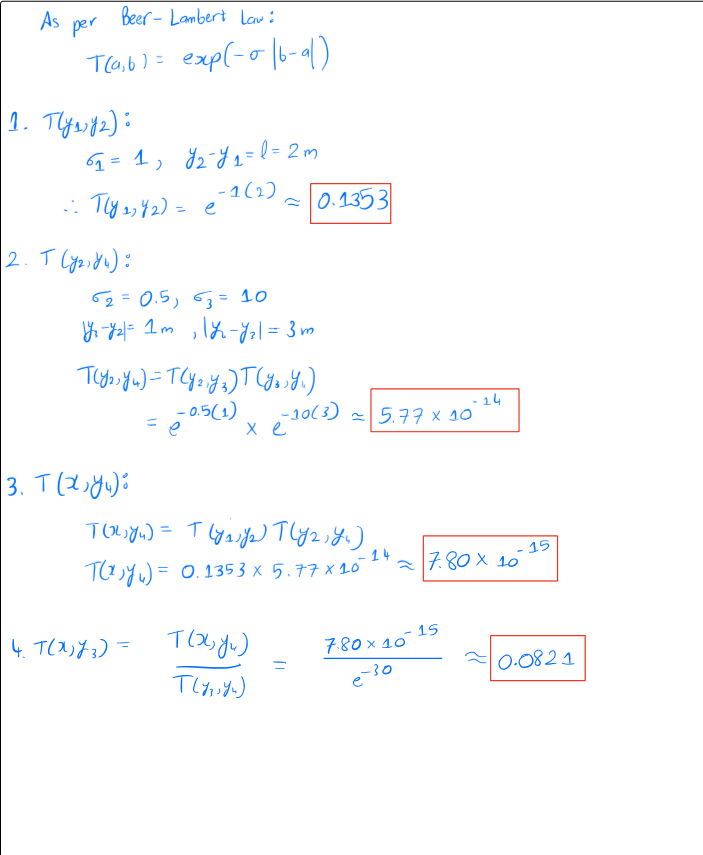 As per Beer-Lambert Law:
T(a,b) = exp(-σ |b-a|)
1. T(y₁,y₂):
σ₁ = 1, y₂-y₁ = l = 2m
∴ T(y₁,y₂) = e^{-1(2)} ≈ 0.1353
2. T(y₂,y₄):
σ₂ = 0.5, σ₃ = 10
|y₃-y₂| = 1m, |y₄-y₃| = 3m
T(y₂,y₄) = T(y₂,y₃)T(y₃,y₄)
= e^{-0.5(1)} × e^{-10(3)} ≈ 5.77 × 10^{-14}
3. T(x,y₄):
T(x,y₄) = T(y₁,y₂)T(y₂,y₄)
T(x,y₄) = 0.1353 × 5.77 × 10^{-14} ≈ 7.80 × 10^{-15}
4. T(x,y₃) = T(x,y₄) / T(y₃,y₄) = 7.80 × 10^{-15} / e^{-30} ≈ 0.0821